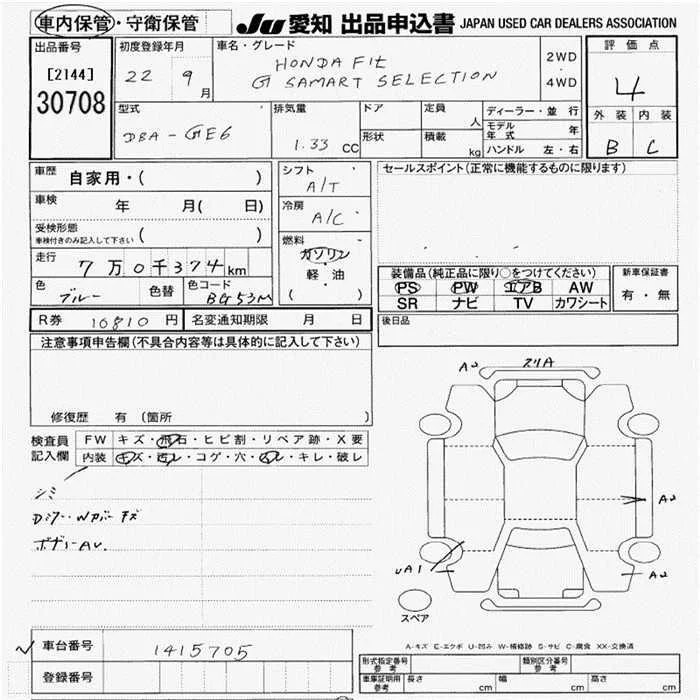 車内保管・守衛保管
JU 愛知 出品申込書 JAPAN USED CAR DEALERS ASSOCIATION
出品番号
[2144]
30708
初度登録年月
22 9月
車名・グレード
HONDA Fit
G SAMART SELECTION
2WD
・
4WD
評価点
4
外装 内装
B C
型式
DBA-GE6
排気量
1.33 CC
ドア
形状
定員
人
積載
kg
ディーラー・並行
モデル年式 年
ハンドル 左・右
車歴
自家用・( )
車検 年 月( 日)
受検形態
車検付きのみ記入して下さい ( )
走行
7万0千374km
色
ブルー
色替
色コード
BG53M
シフト
A/T
冷房
A/C
燃料
ガソリン
・
軽・油
( )
セールスポイント(正常に機能するものに限ります)
装備品(純正品に限り○をつけてください)
PS PW エアB AW
SR ナビ TV カワシート
新車保証書
有・無
R券 10810 円 名変通知期限 月 日
後日品
注意事項申告欄(不具合内容等は具体的に記入して下さい)
修復歴 有 (箇所 )
検査員
記入欄
FW キズ・飛石・ヒビ割・リペア跡・X要
内装 キズ・汚レ・コゲ・穴・ハレ・キレ・破レ
シミ
ボデーAU.
A2
スリA
A2
UA1
A2
スペア
A-キズ E-エクボ U-凹み W-補修跡 S-サビ C-腐食 XX-交換済
車台番号 1415705
登録番号
型式指定番号
参考
類別区分番号
参考
車庫証明用
参考
長さ cm 幅 cm 高さ cm